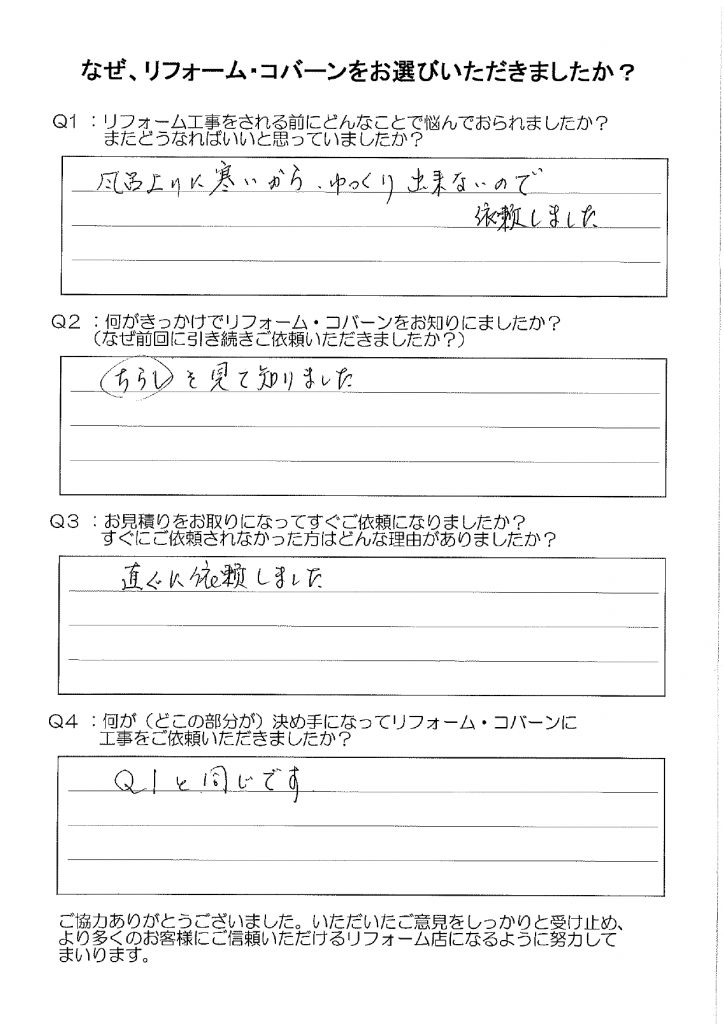 なぜ、リフォーム・コバーンをお選びいただきましたか？
Q1：リフォーム工事をされる前にどんなことで悩んでおられましたか？
またどうなればいいと思っていましたか？
風呂上りに寒いから、ゆっくり出来ないので
依頼しました
Q2：何がきっかけでリフォーム・コバーンをお知りにましたか？
（なぜ前回に引き続きご依頼いただきましたか？）
ちらしを見て知りました
Q3：お見積りをお取りになってすぐご依頼になりましたか？
すぐにご依頼されなかった方はどんな理由がありましたか？
直ぐに依頼しました
Q4：何が（どこの部分が）決め手になってリフォーム・コバーンに
工事をご依頼いただきましたか？
Q1と同じです
ご協力ありがとうございました。いただいたご意見をしっかりと受け止め、
より多くのお客様にご信頼いただけるリフォーム店になるように努力して
まいります。